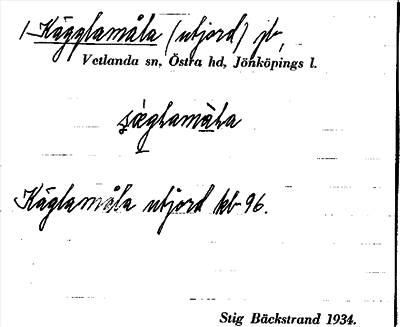 1 Kägglamåla (utjord) jb,
Vetlanda sn, Östra hd, Jönköpings l.
Käglamåla utjord kb 96.
Stig Bäckstrand 1934.